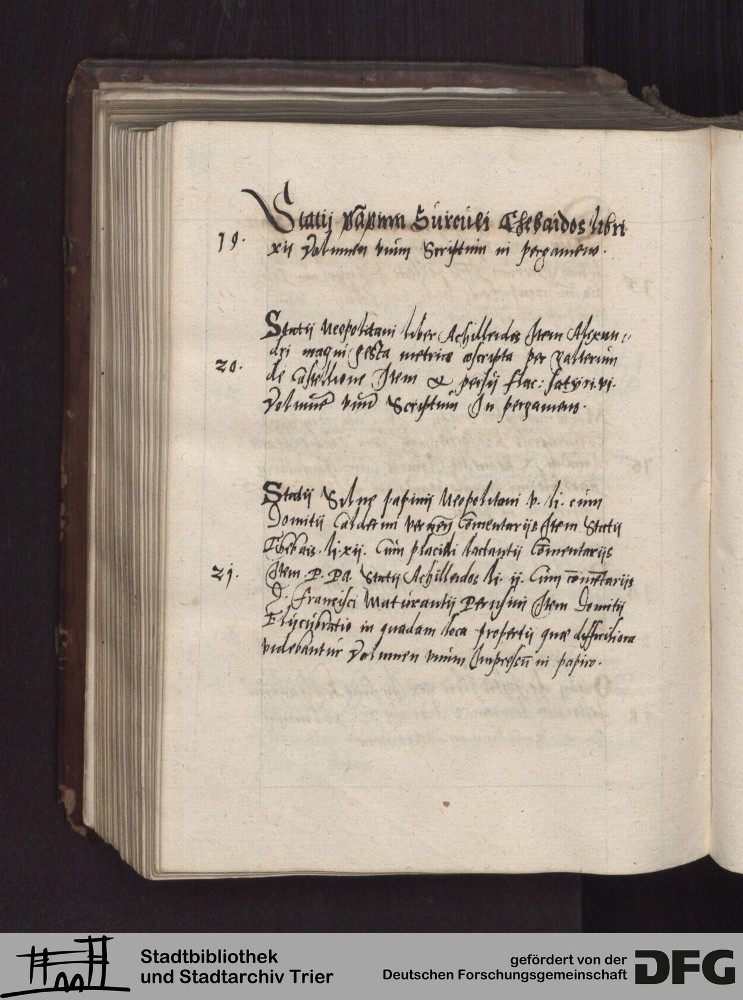 Statij pāpinii Surculi Thebaidos libri
19. xij Volumen vnum Scriptum in pergameno.
Statij Neopolitani liber Achilleidos Item Alexan
dri magni gesta metrice conscripta per Galterum
20. de Castellione Item & persij flac: satyri. vj.
Volumē vnū Scriptum In pergameno.
Statij Silue papinij Neopolitani v. li. cum
Domitij Calderini Comentarijs Item Statij
Thebais. li. xij. Cum placidi lactantij Comentarijs
21. Item. P. Pa. Statij Achilleidos li. ij. Cum comētarijs
D. Francisci Maturantij Perusini Item Domitij
in quadam loca propertij quae difficiliora
videbantur Volumen vnum Impressū in papiro.
Stadtbibliothek
und Stadtarchiv Trier
gefördert von der
Deutschen Forschungsgemeinschaft
DFG